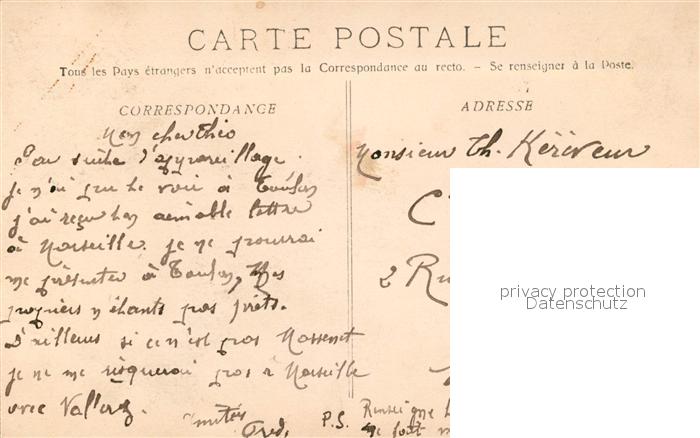 CARTE POSTALE
Tous les Pays étrangers n'acceptent pas la Correspondance au recto. – Se renseigner à la Poste.
CORRESPONDANCE
ADRESSE
Mon cher Théo
Par suite d'appareillage.
je n'ai pu te voir à Toulon
j'ai reçu ton aimable lettre
à Marseille. je ne pourrai
me présenter à Toulon, Mes
papiers n'étants pas prêts.
D'ailleurs si ce n'est pas Massenet
je ne me risquerai pas à Marseille
avec
Amitiés
Fred.
Monsieur Th.
C
2 Ru
P.S. Renseigne
me
privacy protection
Datenschutz